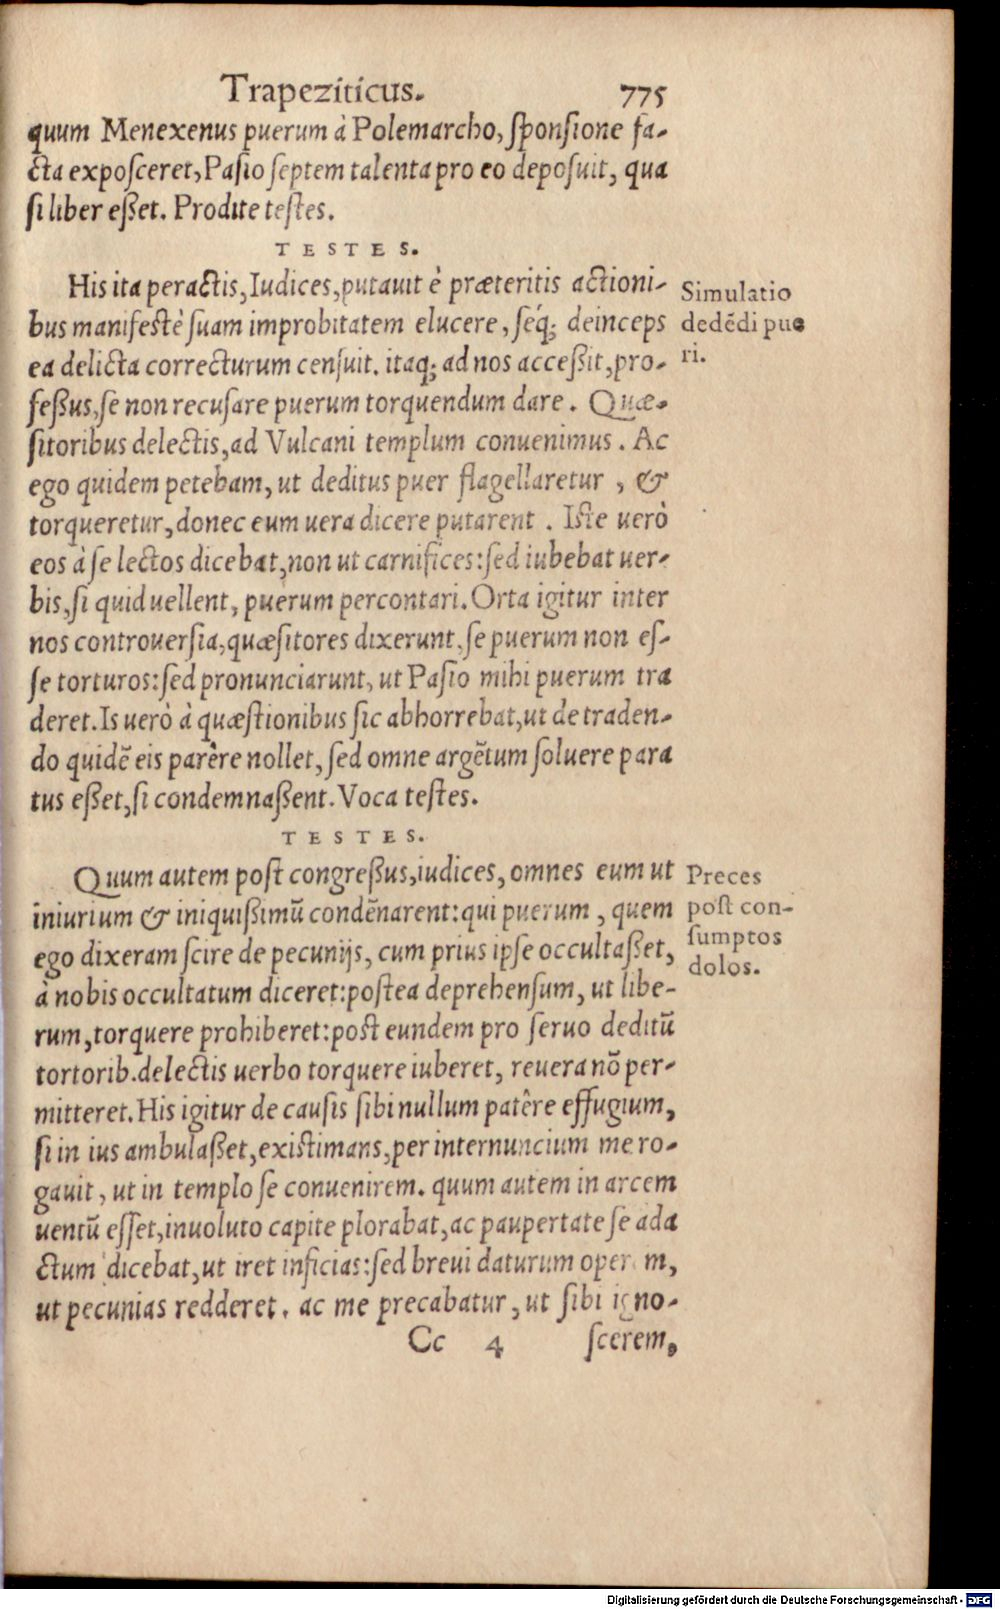 Trapeziticus. 775
quum Menexenus puerum à Polemarcho, sponsione fa-
cta exposceret, Pasio septem talenta pro eo deposuit, qua
si liber eßet. Prodite testes.
TESTES.
His ita peractis, Iudices, putauit è præteritis actioni-
bus manifestè suam improbitatem elucere, seq́; deinceps
ea delicta correcturum censuit. itaq; ad nos acceßit, pro-
feßus, se non recusare puerum torquendum dare. Quæ-
sitoribus delectis, ad Vulcani templum conuenimus. Ac
ego quidem petebam, ut deditus puer flagellaretur, &
torqueretur, donec eum uera dicere putarent. Iste uerò
eos à se lectos dicebat, non ut carnifices: sed iubebat uer-
bis, si quid uellent, puerum percontari. Orta igitur inter
nos controuersia, quæsitores dixerunt, se puerum non es-
se torturos: sed pronunciarunt, ut Pasio mihi puerum tra
deret. Is uerò à quæstionibus sic abhorrebat, ut de traden-
do quidẽ eis parêre nollet, sed omne argẽtum soluere para
tus eßet, si condemnaßent. Voca testes.
TESTES.
Quum autem post congreßus, iudices, omnes eum ut
iniurium & iniquißimũ condẽnarent: qui puerum, quem
ego dixeram scire de pecunijs, cum prius ipse occultaßet,
à nobis occultatum diceret: postea deprehensum, ut libe-
rum, torquere prohiberet: post eundem pro seruo deditũ
tortorib. delectis uerbo torquere iuberet, reuera nõ per-
mitteret. His igitur de causis sibi nullum patêre effugium,
si in ius ambulaßet, existimans, per internuncium me ro-
gauit, ut in templo se conuenirem. quum autem in arcem
uentũ esset, inuoluto capite plorabat, ac paupertate se ada
ctum dicebat, ut iret inficias: sed breui daturum operam,
ut pecunias redderet. ac me precabatur, ut sibi igno-
Cc 4 scerem,
Simulatio
dedẽdi pue
ri.
Preces
post con-
sumptos
dolos.
Digitalisierung gefördert durch die Deutsche Forschungsgemeinschaft - DFG